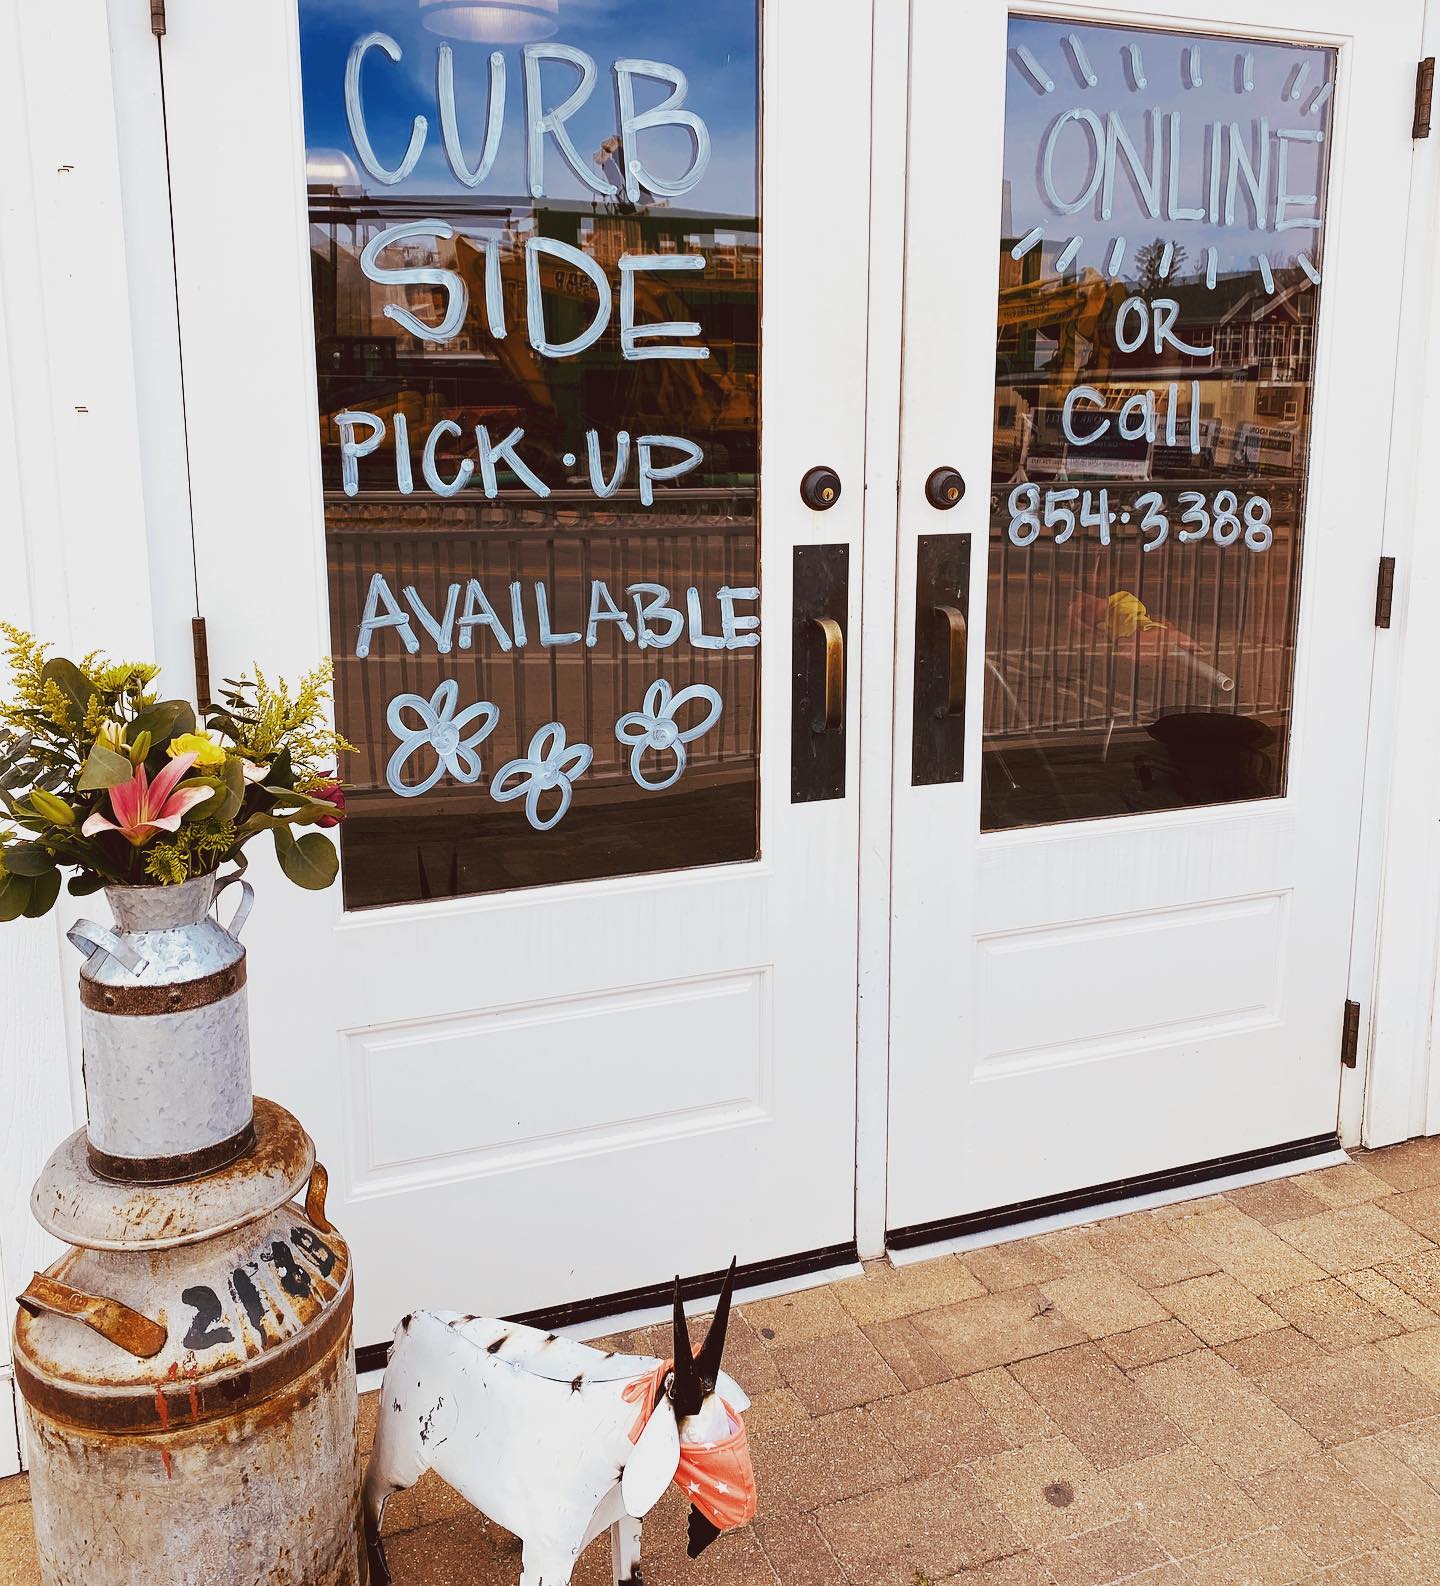 CURB
SIDE
PICK·UP
AVAILABLE
ONLINE
OR
call
854··3388